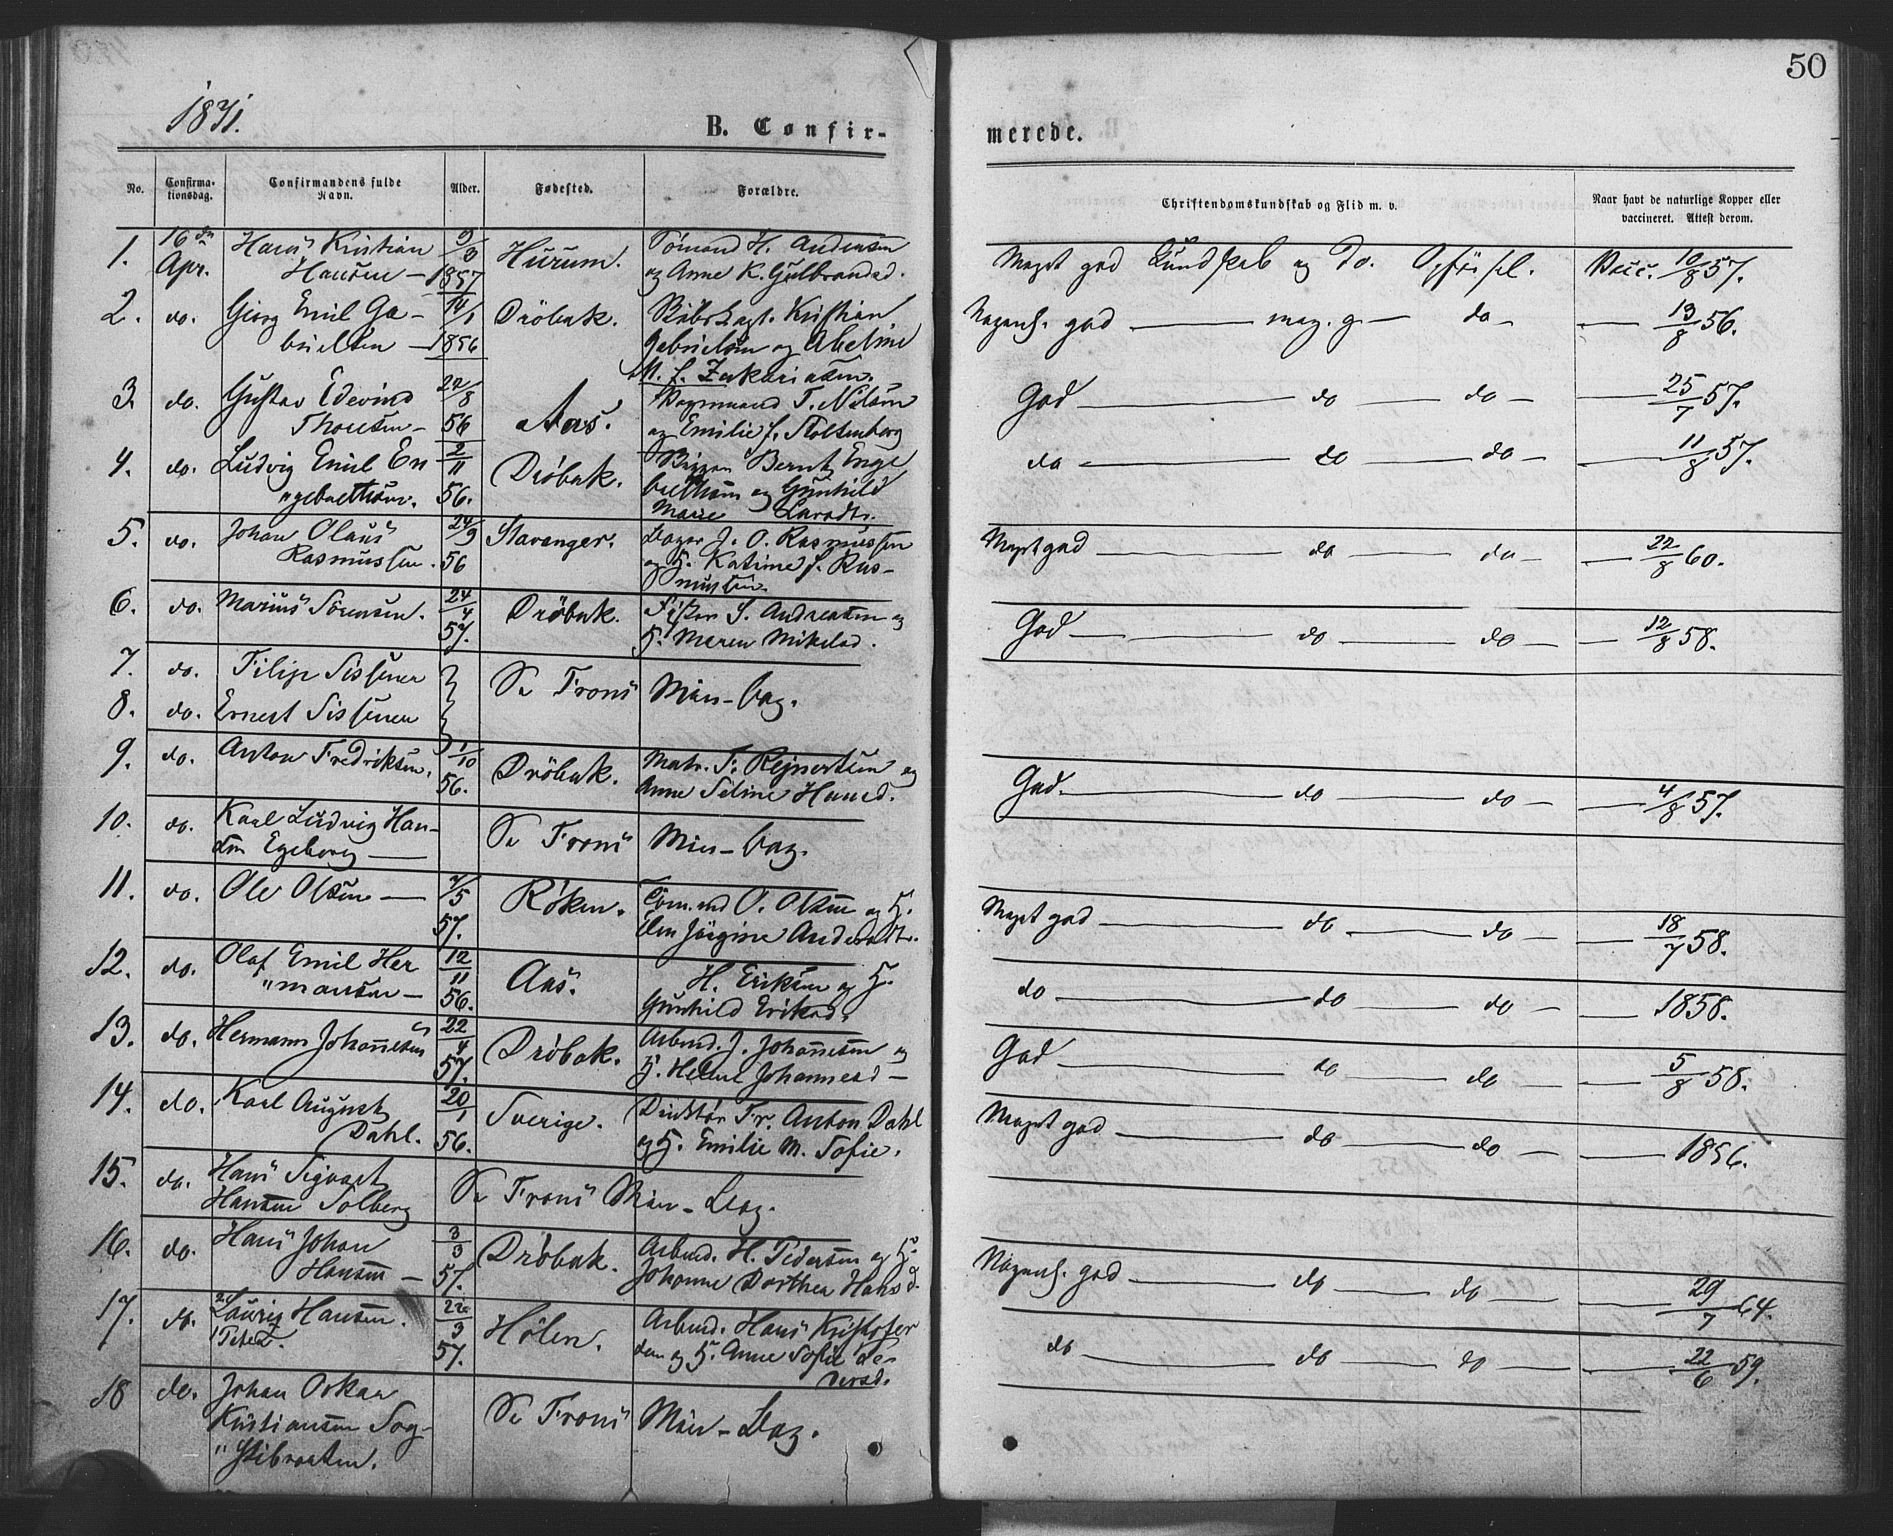 50
1871.
B. Confir-
merede.
No.
Confirma-
tionsdag.
Confirmandens fulde
Navn.
Alder.
Fødested.
Forældre.
Christendomskundskab og Flid m. v.
Naar havt de naturlige Kopper eller
vaccineret. Attest derom.
1. 16de Apr. Hans Kristian Hansen — 9/3 1857 Hurum. Sömand H. Andersen og Anne K. Gulbrandsd. Meget god Kundskab og do. Vacc. 10/8 57.
2. do. Georg Emil Gabrielsen — 14/1 1856 Dröbak. Kristian Gabrielsen og Abeline M. f. Zakariasen. god — meg. g — do — 13/8 56.
3. do. Gustav Edevind Thoresen — 22/8 56 Aas. T. Nilsen og Emilie f. Stoltenberg God — do — do — 25/7 57.
4. do. Ludvig Emil En
"gebrettsen. 2/11 56. Dröbak. Bernt Engebrettsen og Gunhild Marie do — do — do — 11/8 57.
5. do. Johan Olaus Rasmussen. 24/9 56 Stavanger. J. O. Rasmussen og H. Katrine f. Rasmussen. Meget god — do — do — 22/8 60.
6. do. Marius Sörensen. 24/4 57. Dröbak. Fisker S. Andreasen og H. Maren Mikelsd. God — do — do — 12/8 58.
7. do. Filip Sissener
8. do. Ernest Sissener Se Frons Min-bog.
9. do. Anton Fredriksen. 1/10 56. Dröbak. Matr. F. Rejnertsen og Anne Seline Hansd. God. — do — do — 4/8 57.
10. do. Karl Ludvig Hansen Egeberg — Se Frons Min-bog.
11. do. Ole Olsen — 7/5 57. Röken. Tömmd O. Olsen og H. Elen Jörgine Andersdtr. Meget god — do — do — 18/7 58.
12. do. Olaf Emil Her
"mansen — 12/11 56. Aas. H. Eriksen og H. Gunhild Eriksd. do — do — do — 1858.
13. do. Hermann Johannesen 22/4 57. Dröbak. Arbmd. J. Johannesen og H. Helene Johannesd — God — do — do — 5/8 58.
14. do. Karl August Dahl. 20/1 56. Sverige. Fr. Anton Dahl og H. Emilie M. Sofie. Meget god — do — do — 1856.
15. do. Hans Sigvart Hansen Solberg Se Frons Min-Bog.
16. do. Hans Johan Hansen — 3/3 57. Dröbak. Arbmd. H. Pedersen og H. Johanne Dorthea Hansd. Nogenl. god — do — do — 29/7 64.
17. do. Lauritz Hansen. Peter 22/3 57. Hölen. Arbmd. Hans Kristofersen og H. Anne Sofie do — do — do — 22/6 59.
18 do. Johan Oskar Kristiansen Sog-
"stibraaten. Se Frons Min-Bog.